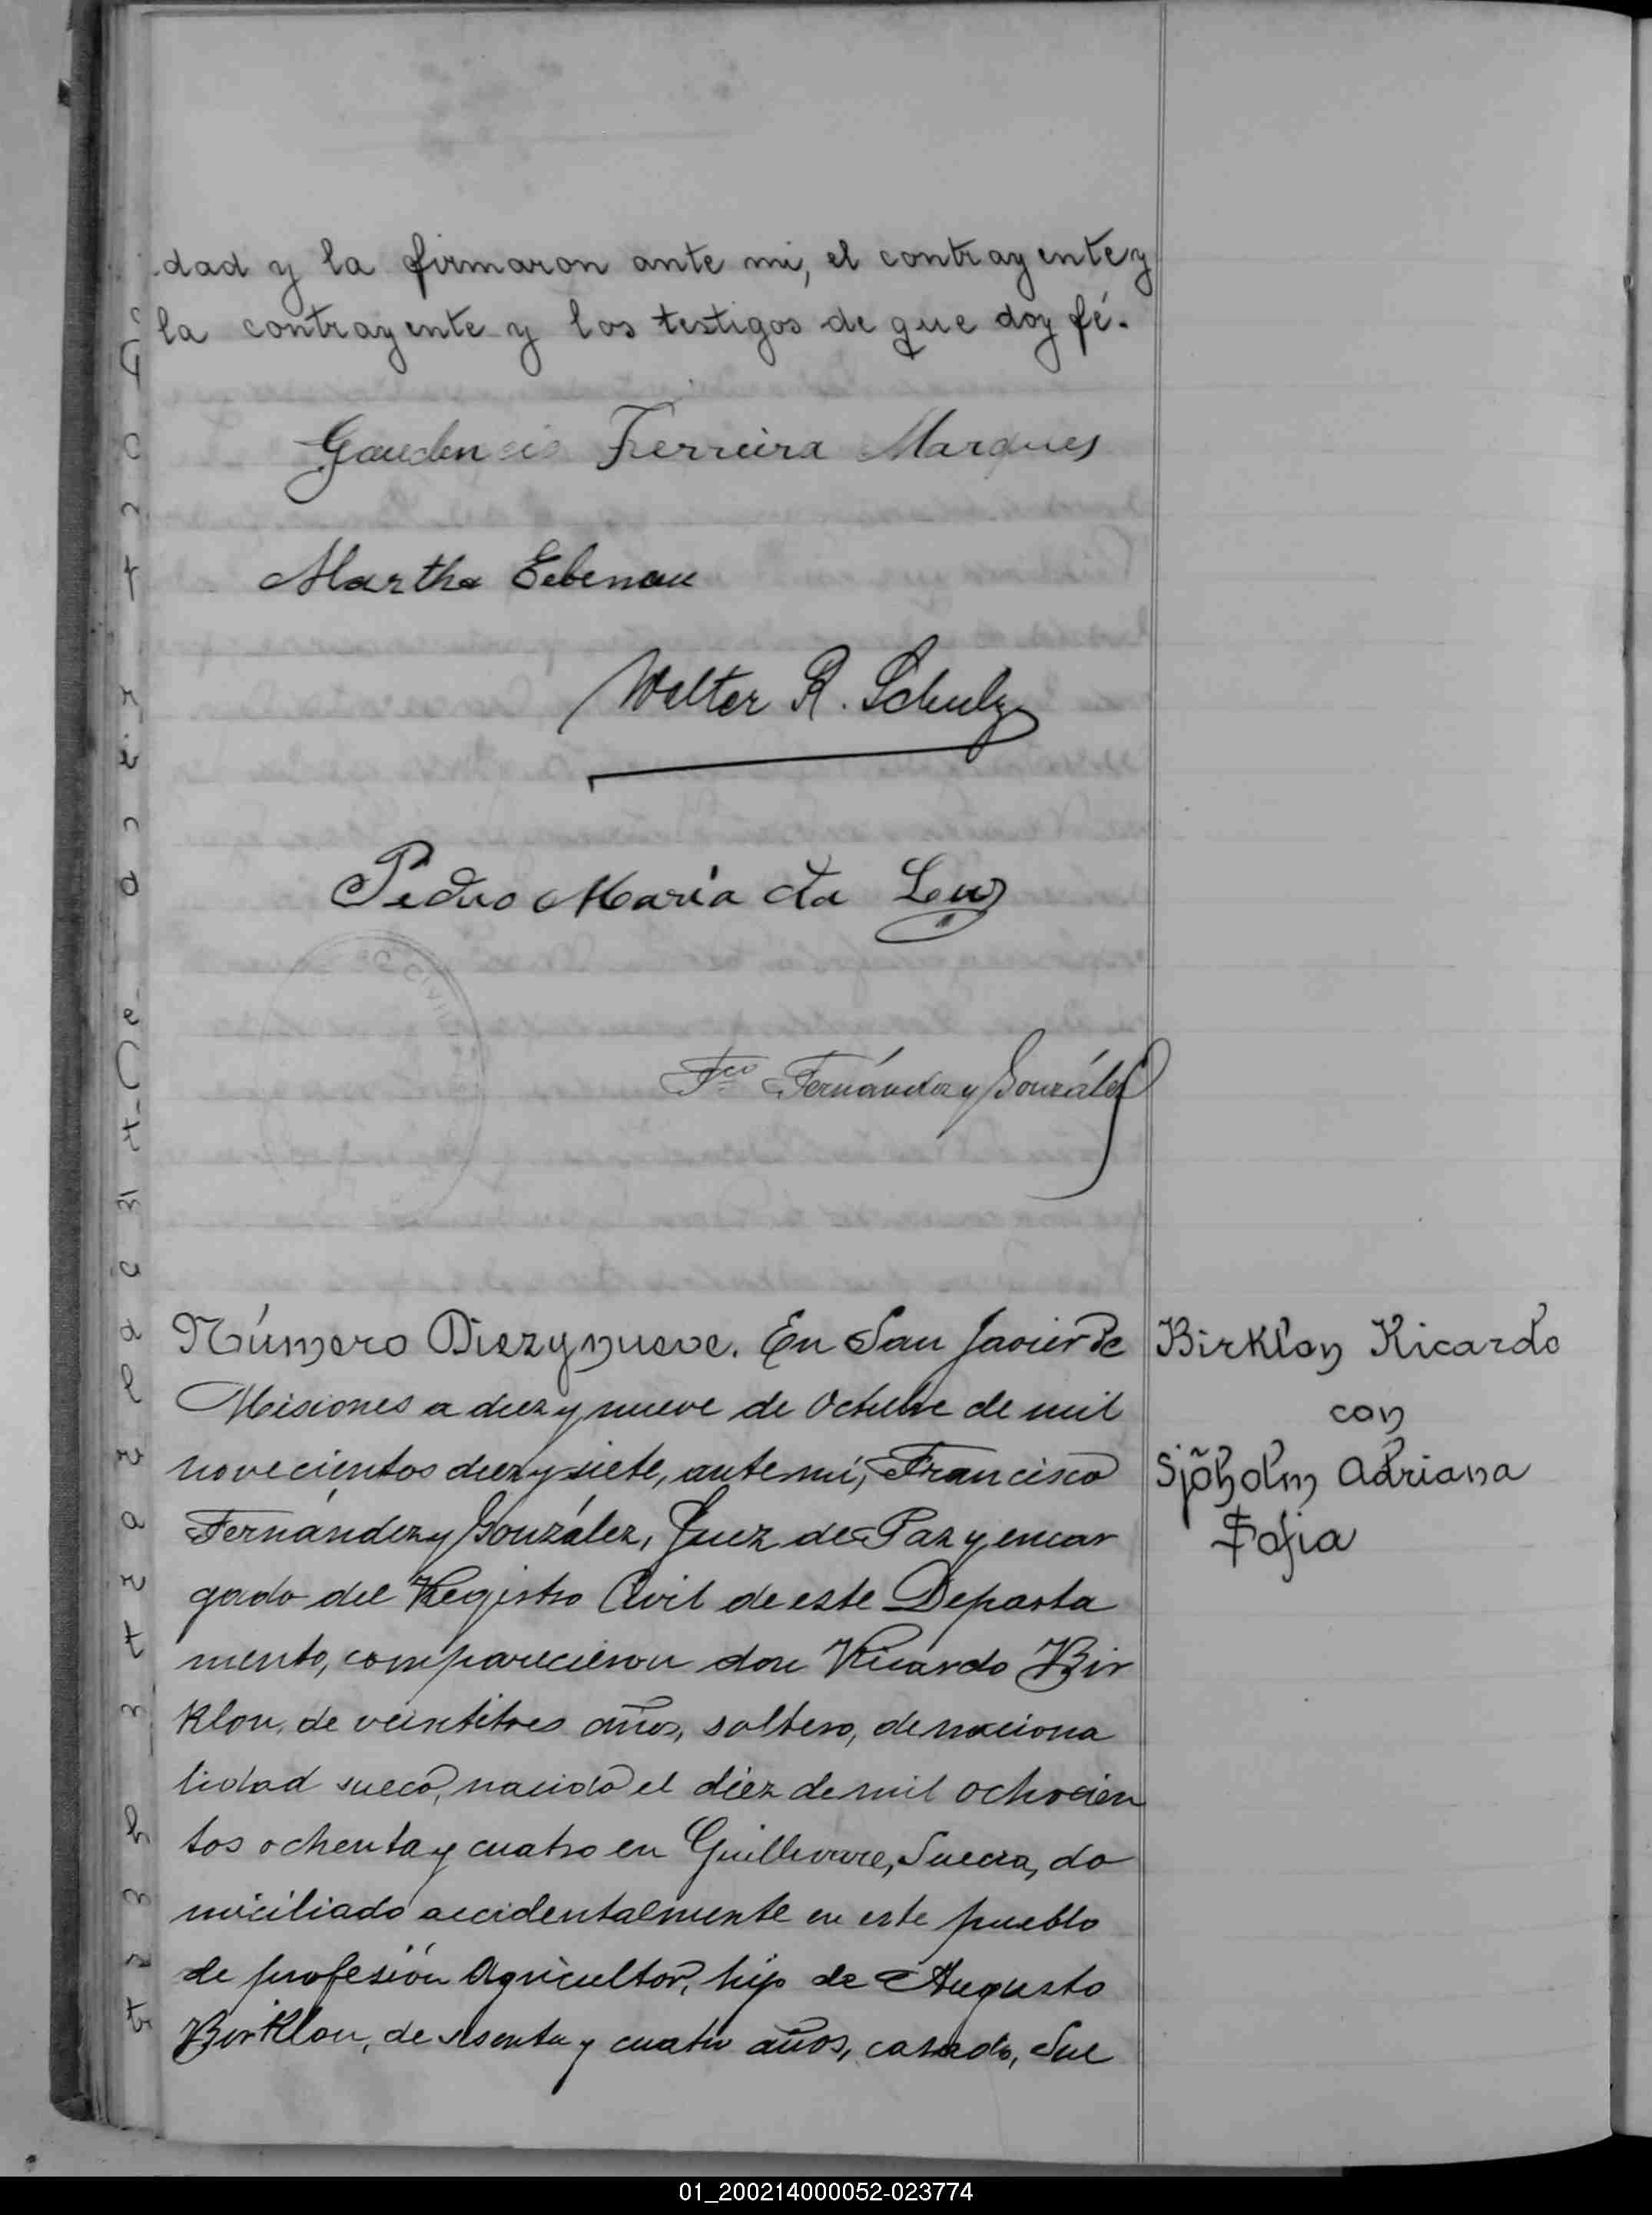 dad y la firmaron ante mi, el contrayente y
la contrayente y los testigos de que doy fé.
Gaudencio Ferreira Marques
Martha Eebenau
Walter R. Schulz
Pedro María da Luz
Fco Fernández y González
Número Diez y nueve. En San Javier de
Misiones a diez y nueve de Octubre de mil
novecientos diez y siete, ante mí, Francisco
Fernández y González, Juez de Paz y encar
gado del Registro Civil de este Departa
mento, comparecieron don Ricardo Bir
Klon, de veintitres años, soltero, de naciona
lidad sueco, nacido el diez de mil ochocien
tos ochenta y cuatro en Guillivare, Suecia, do
miciliado accidentalmente en este pueblo
de profesión Agricultor, hijo de Augusto
BirKlon, de sesenta y cuatro años, casado, Sue
BirKlon Ricardo
con
Sjöholm Adriana
Sofia
CIVIL
01_200214000052-023774